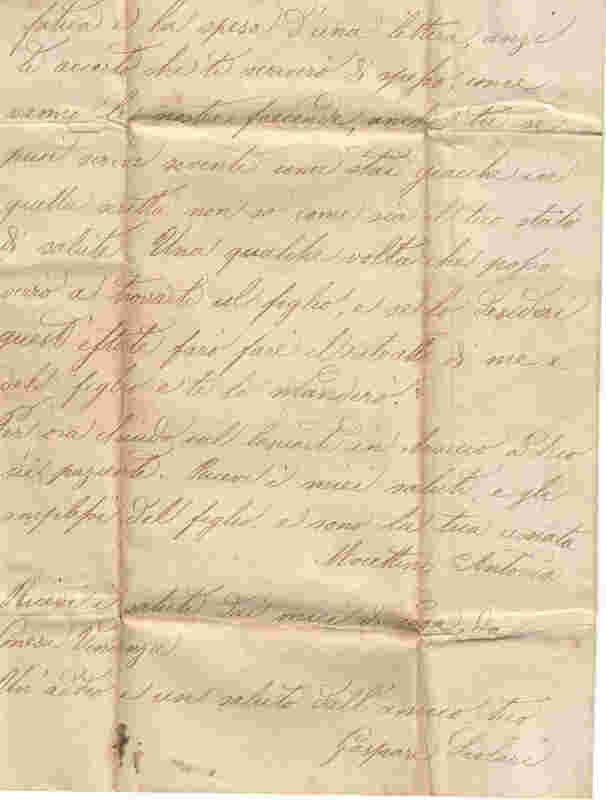 fatica e la spesa d'una lettera, anzi
ti accerto che ti scriverò di spesso, come
vanno le nostre faccende, anche tu se
puoi scrivi sovente come stai giacché in
quella scritta non so come sia il tuo stato
di salute. Una qualche volta che posso
verrò a trovarti col figlio, e se lo desideri
quest'estate farò fare il ritratto di me e
del figlio e te lo manderò.
Per ora chiudo coll lasciarti in braccio a Dio
sii paziente. Ricevi i miei saluti e gli
amplessi del figlio e sono la tua amata
Antonia
Ricevi i saluti dei miei di casa, da
Vincenza
Un addio e un saluto dall'amico tuo
Gaspare